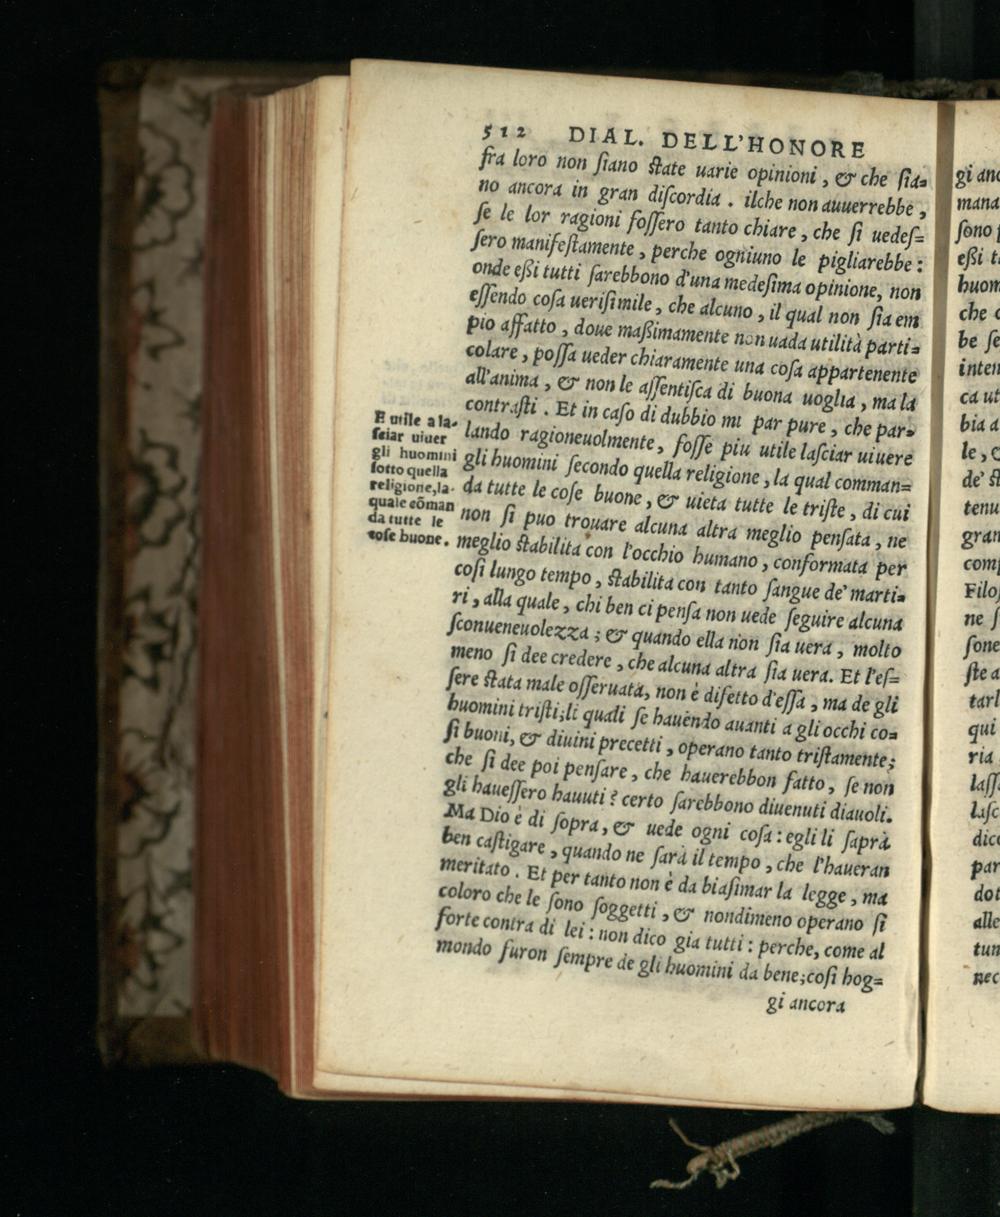 512 DIAL. DELL'HONORE
fra loro non ſiano ſtate uarie opinioni, & che ſia=
no ancora in gran diſcordia. ilche non auuerrebbe,
ſe le lor ragioni foſſero tanto chiare, che ſi uedeſ=
ſero manifeſtamente, perche ogniuno le pigliarebbe:
onde eßi tutti ſarebbono d'una medeſima opinione, non
eſſendo coſa ueriſimile, che alcuno, il qual non ſia em
pio affatto, doue maßimamente non uada utilità parti=
colare, poſſa ueder chiaramente una coſa appartenente
all'anima, & non le aſſentiſca di buona uoglia, ma la
contraſti. Et in caſo di dubbio mi par pure, che par=
lando ragioneuolmente, foſſe piu utile laſciar uiuere
gli huomini ſecondo quella religione, la qual comman=
da tutte le coſe buone, & uieta tutte le triſte, di cui
non ſi puo trouare alcuna altra meglio penſata, ne
meglio ſtabilita con l'occhio humano, conformata per
coſi lungo tempo, ſtabilita con tanto ſangue de' marti=
ri, alla quale, chi ben ci penſa non uede ſeguire alcuna
ſconueneuolezza; & quando ella non ſia uera, molto
meno ſi dee credere, che alcuna altra ſia uera. Et l'eſ=
ſere ſtata male oſſeruata, non è difetto d'eſſa, ma de gli
huomini triſti; li quali ſe hauendo auanti a gli occhi co=
ſi buoni, & diuini precetti, operano tanto triſtamente;
che ſi dee poi penſare, che hauerebbon fatto, ſe non
gli haueſſero hauuti? certo ſarebbono diuenuti diauoli.
Ma Dio è di ſopra, & uede ogni coſa: egli li ſaprà
ben caſtigare, quando ne ſarà il tempo, che l'haueran
meritato. Et per tanto non è da biaſimar la legge, ma
coloro che le ſono ſoggetti, & nondimeno operano ſi
forte contra di lei: non dico gia tutti: perche, come al
mondo furon ſempre de gli huomini da bene; coſi hog=
gi ancora
E utile a la-
ſciar uiuer
gli huomini
ſotto quella
religione, la-
quale cõman
da tutte le
coſe buone.
gi anc
mana
ſono
eßi t
huom
che
be ſe
inten
ca ut
bia a
le, &
de' ſt
tenu
gran
comp
Filoſ
ne ſ
ſone
ſte a
tarl
qui
ria
laſſ
laſc
dico
par
dot
alle
tun
nec